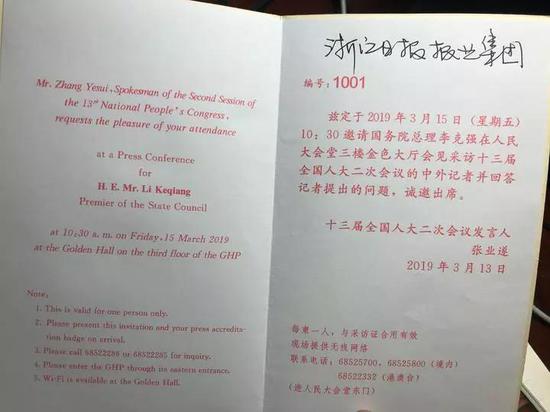 Mr. Zhang Yesui, Spokesman of the Second Session of
the 13rd National People's Congress,
requests the pleasure of your attendance
at a Press Conference
for
H. E. Mr. Li Keqiang
Premier of the State Council
at 10:30 a. m. on Friday, 15 March 2019
at the Golden Hall on the third floor of the GHP
Note:
1. This is valid for one person only.
2. Please present this invitation and your press accredita-
tion badge on arrival.
3. Please call 68522286 or 68522285 for inquiry.
4. Please enter the GHP through its eastern entrance.
5. Wi-Fi is available at the Golden Hall.
浙江日报报业集团
编号：1001
兹定于 2019 年 3 月 15 日（星期五）
10：30 邀请国务院总理李克强在人民
大会堂三楼金色大厅会见采访十三届
全国人大二次会议的中外记者并回答
记者提出的问题，诚邀出席。
十三届全国人大二次会议发言人
张业遂
2019 年 3 月 13 日
每柬一人，与采访证合用有效
现场提供无线网络
联系电话：68525700，68525800（境内）
68522332（港澳台）
（进人民大会堂东门）